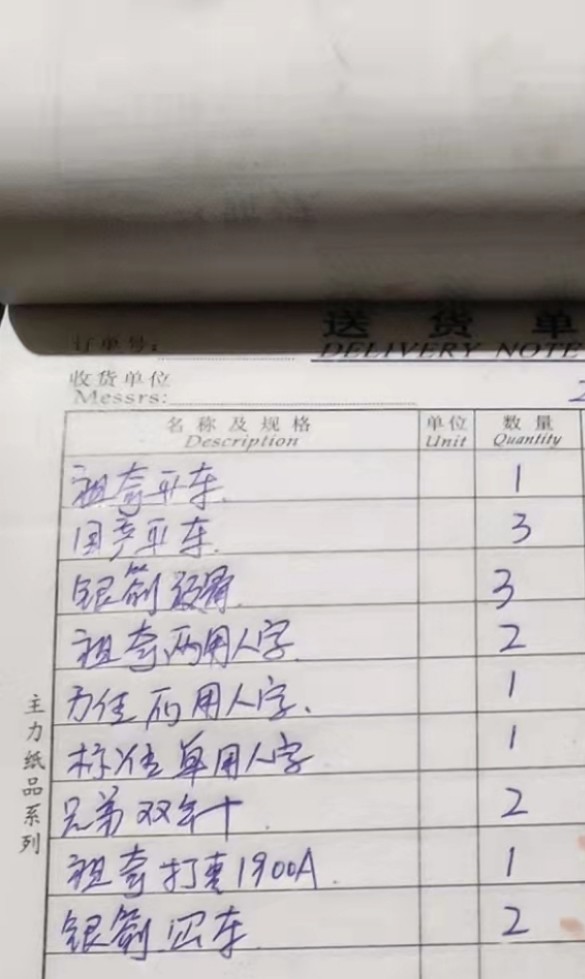 送货单
DELIVERY NOTE
订单号:
收货单位
Messrs:
名称及规格 单位 数量
Description Unit Quantity
祖奇平车. 1
国产平车. 3
银箭 3
祖奇两用人字. 2
力佳两用人字. 1
标准单用人字 1
兄弟双针. 2
祖奇打枣1900A. 1
银箭四车. 2
主力纸品系列